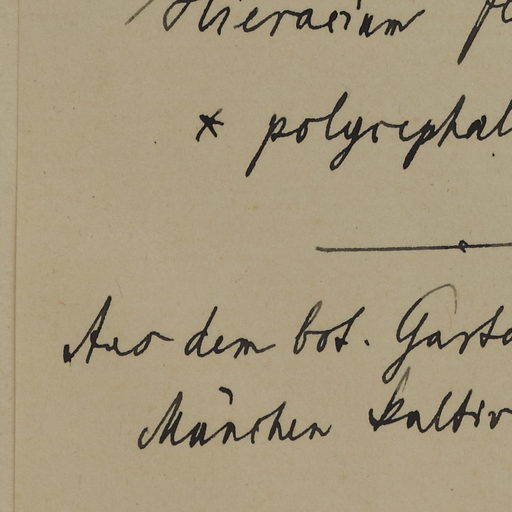 Hieracium fl
× polycephal
Aus dem bot. Garte
München kultiv